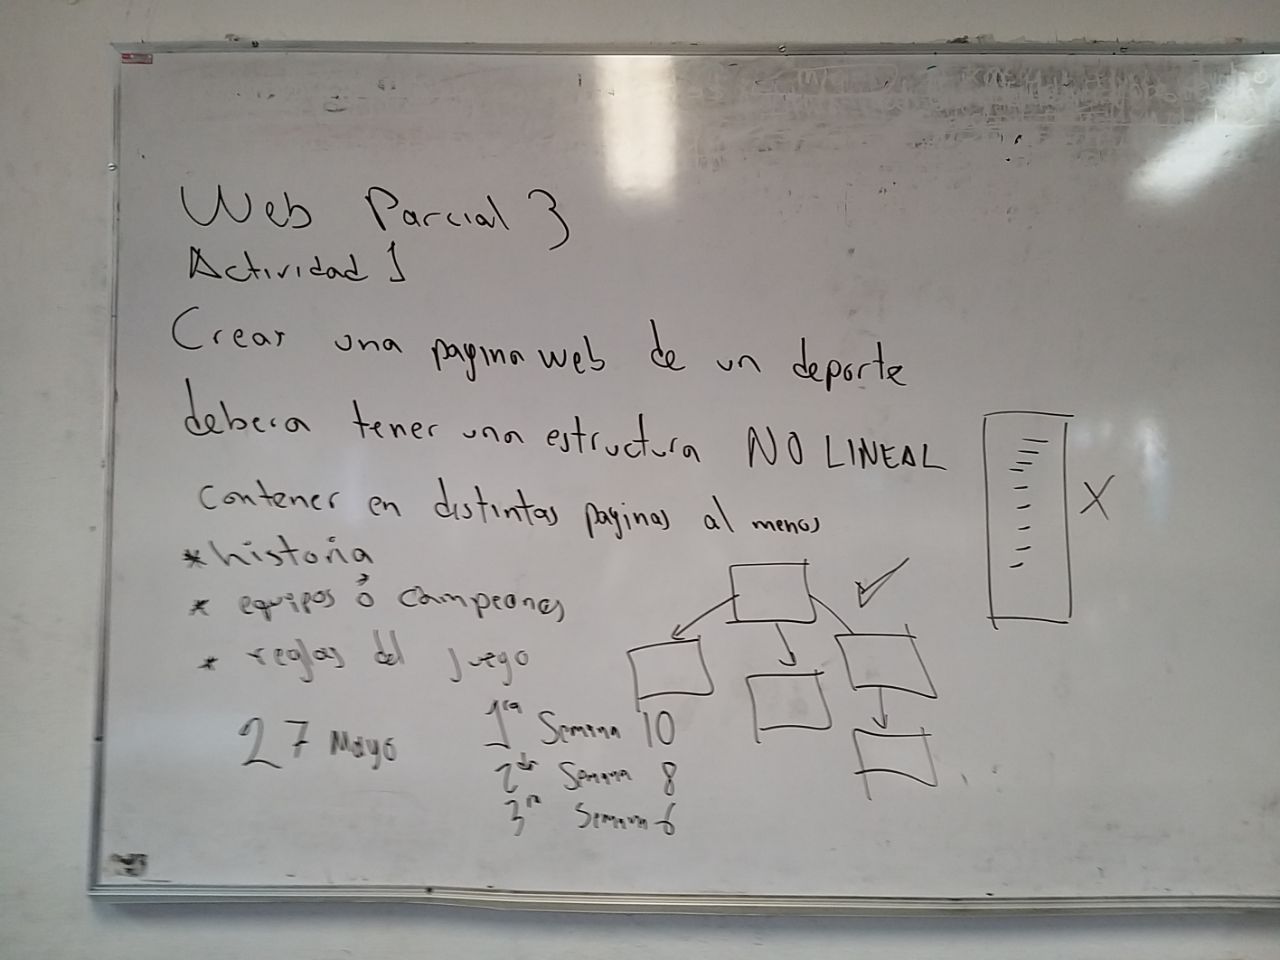 Web Parcial 3
Actividad 1
Crear una pagina web de un deporte
debera tener una estructura NO LINEAL
contener en distintas paginas al menos
* historia
* equipos ó campeones
* reglas del juego
27 Mayo
1ra Semana 10
2da Semana 8
3ra Semana 6
X